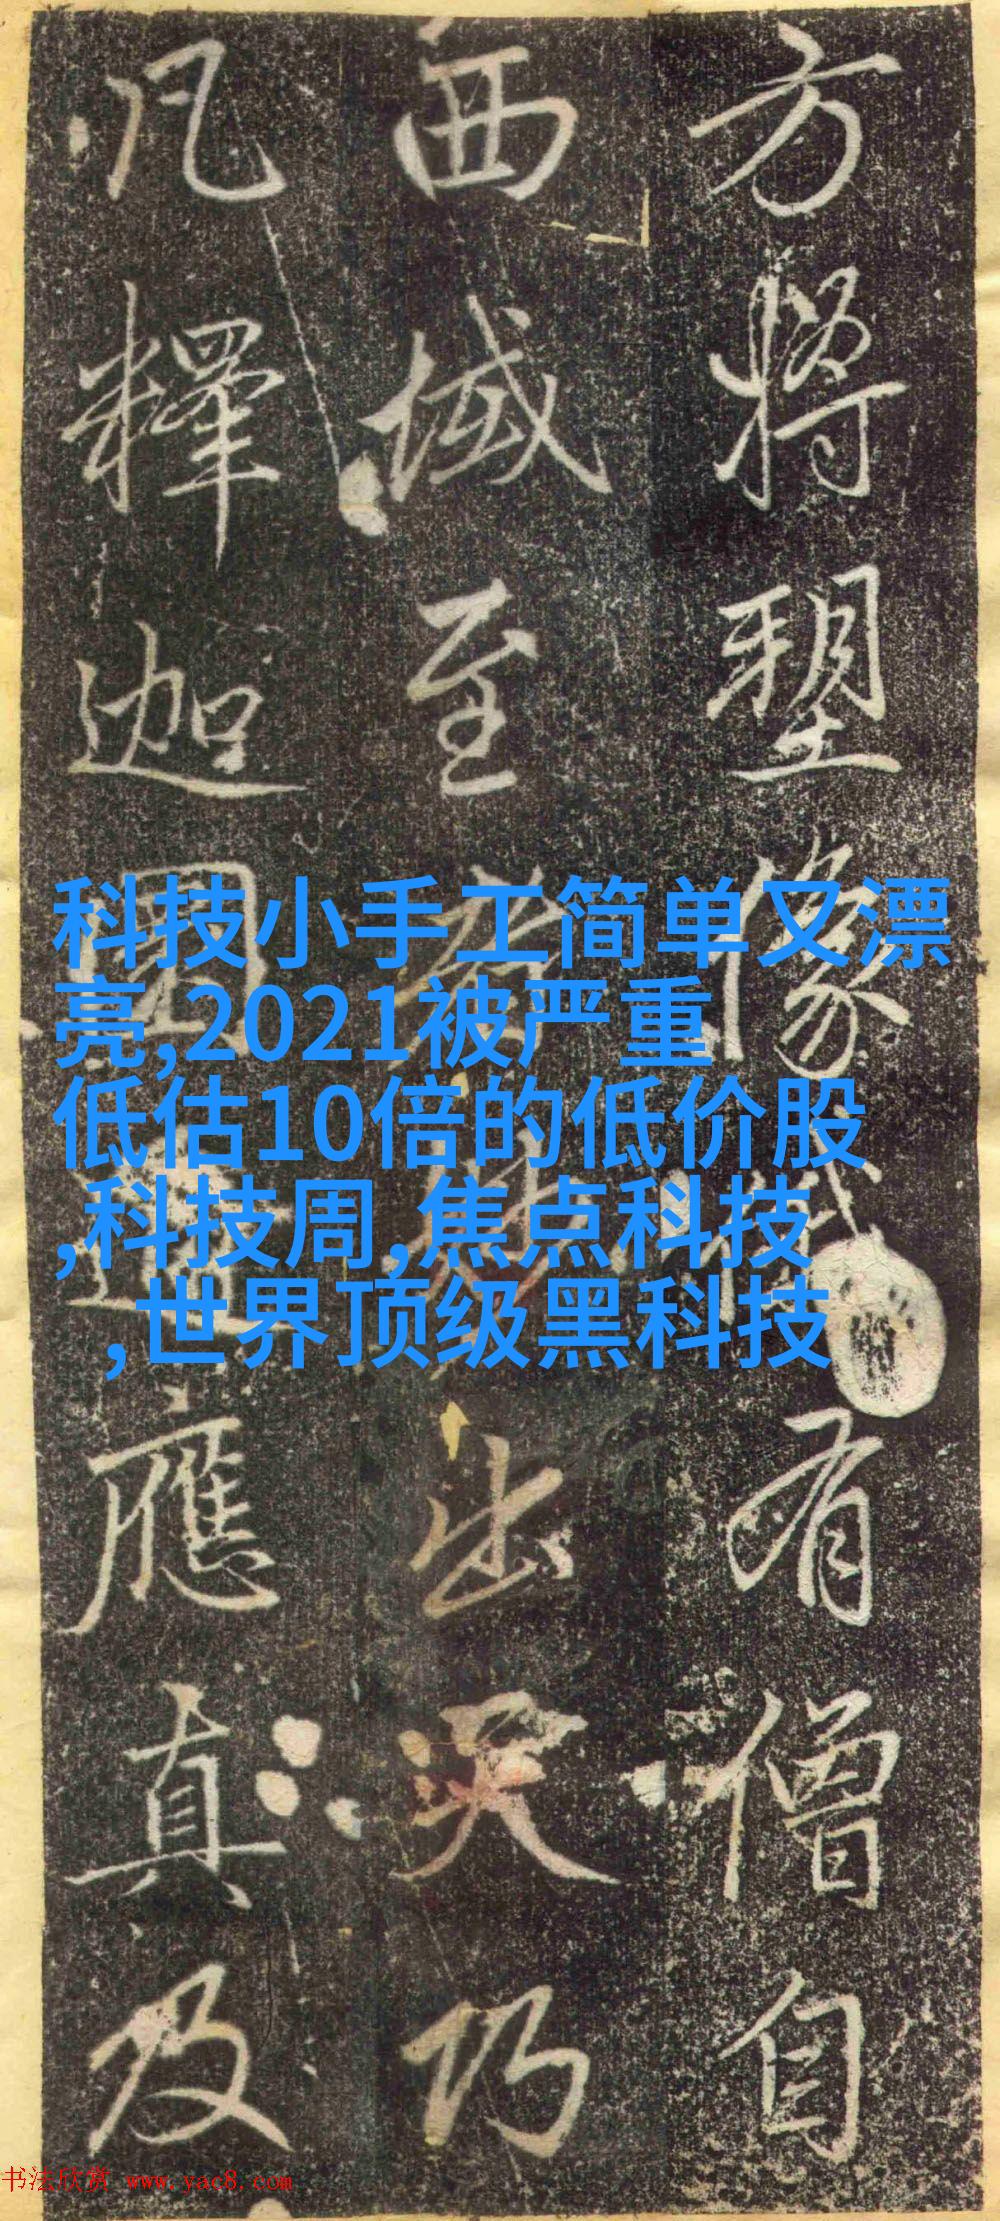 方將塑像有僧自
西域至者出天巧
凡釋迦應真及
科技小手工简单又漂
亮,2021被严重
低估10倍的低价股
,科技周,焦点科技
,世界顶级黑科技
书法欣赏 www.yac8.com